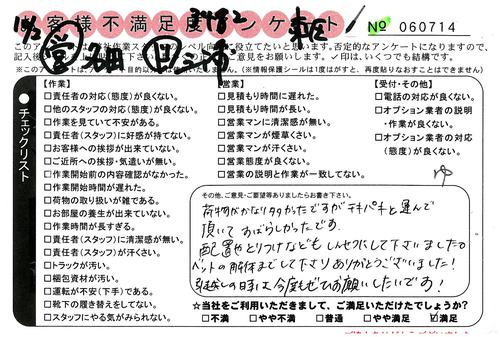 お客様不満足度アンケート
No 060714
【作業】
□責任者の対応(態度)が良くない。
□他のスタッフの対応(態度)が良くない。
□作業を見ていて不安がある。
□責任者(スタッフ)に好感が持てない。
□お客様への挨拶が出来ていない。
□ご近所への挨拶・気遣いが無い。
□作業開始前の内容確認がなかった。
□作業開始時間が遅れた。
□荷物の取り扱いが雑である。
□お部屋の養生が出来ていない。
□作業時間が長すぎる。
□責任者(スタッフ)に清潔感が無い。
□責任者(スタッフ)が汗くさい。
□トラックが汚い。
□梱包資材が汚い。
□運転が不安(下手)である。
□靴下の履き替えをしてない。
□スタッフにやる気がみられない。
営業】
□見積もり時間に遅れた。
□見積もり時間が長い。
□営業マンに清潔感が無い。
□営業マンが煙草くさい。
□営業マンが汗くさい。
□営業態度が良くない。
□営業の説明と作業が一致してない。
【受付・その他】
□電話の対応が良くない。
□オプション業者の説明
・作業が良くない。
□オプション業者の対応
(態度)が良くない。
●チェックリスト
その他、ご意見・ご要望等ありましたらお書き下さい。
荷物がかなり多かったですがテキパキと運んで
頂いてすばらしかったです。
配置やとりつけなども しんせつにして下さいました。
ベットの解体までして下さり ありがとうございました!
引越しの時は、今度もぜひお願いしたいです!
☆当社をご利用いただきまして、ご満足いただけたでしょうか?
□不満 □やや不満 □普通 □やや満足 ☑満足